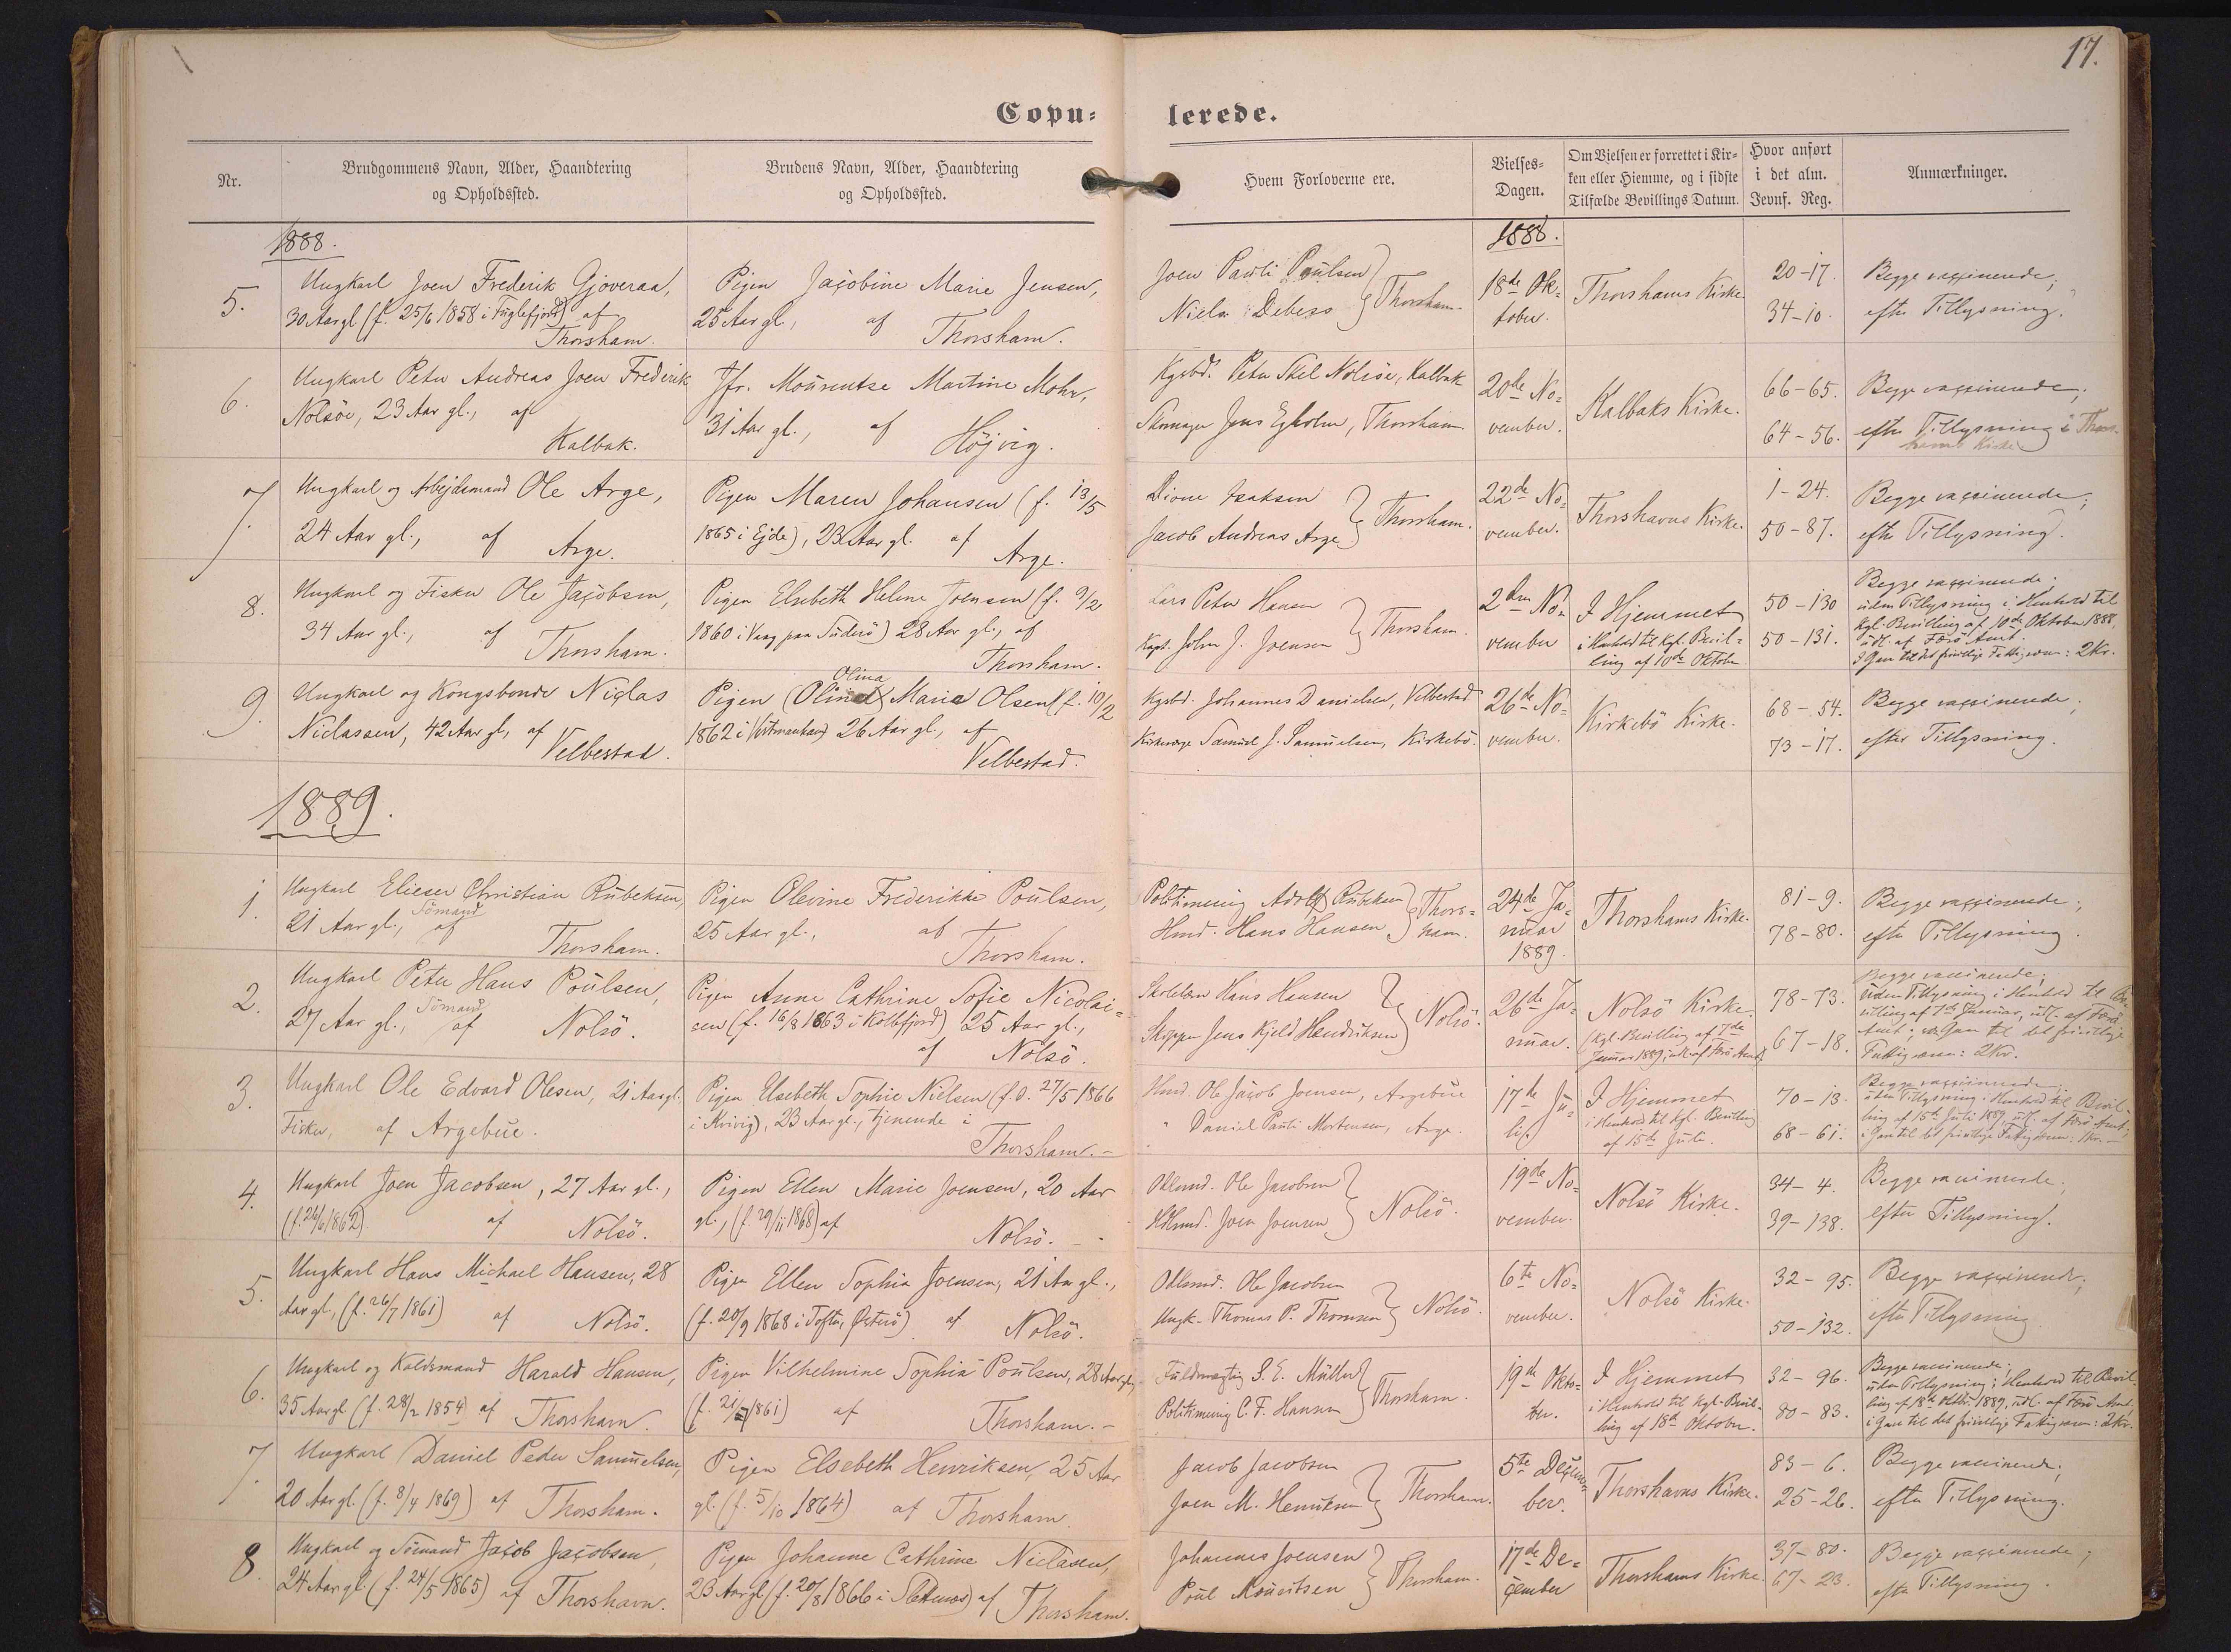 17.
Copu=
lerede.
Nr.
Brudgommens Navn, Alder, Haandtering
og Opholdssted.
Brudens Navn, Alder, Haandtering
og Opholdssted.
Hvem Forloverne ere.
Vielses-
Dagen.
Om Vielsen er forrettet i Kir-
ken eller Hiemme, og i sidste
Tilfælde Bevillings Datum.
Hvor anført
i det alm.
Jevnf. Reg.
Anmærkninger.
1888.
1888.
5.
Ungkarl Joen Frederik Gjoveraa,
30 Aar gl. (f. 25/6 1858 i Fuglefjord) af
Thorshavn.
Pigen Jacobine Marie Jensen,
25 Aar gl., af
Thorshavn.
Joen Pauli Poulsen
Niels Debess } Thorshavn.
18de Ok-
tober.
Thorshavns Kirke.
20-17.
34-10.
Begge vaccinerede;
efter Tillysning.
6.
Ungkarl Peter Andreas Joen Frederik
Nolsøe, 23 Aar gl., af
Kalbak.
Jfr. Mourentse Martine Mohr,
31 Aar gl., af
Højvig.
Kgsbd. Peter Skel Nolsøe, Kalbak
Skomager Jens Egholm, Thorshavn.
20de No-
vember.
Kalbaks Kirke.
66-65.
64-56.
Begge vaccinerede;
efter Tillysning i Thors-
havns Kirke
7.
Ungkarl og Arbejdsmand Ole Arge,
24 Aar gl., af
Arge.
Pigen Maren Johansen (f. 13/5
1865 i Ejde), 23 Aar gl. af
Arge.
Dione Isaksen
Jacob Andreas Arge } Thorshavn.
22de No-
vember.
Thorshavns Kirke.
1-24.
50-87.
Begge vaccinerede;
efter Tillysning.
8.
Ungkarl og Fisker Ole Jacobsen,
34 Aar gl., af
Thorshavn.
Pigen Elsebeth Helene Joensen (f. 9/2
1860 i Vaag paa Suderø) 28 Aar gl., af
Thorshavn.
Lars Peter Hansen
Kapt. John J. Joensen } Thorshavn.
2den No-
vember
I Hjemmet
i Henhold til Kgl. Bevil-
ling af 10de Oktober
50-130
50-131.
Begge vaccinerede;
uden Tillysning i Henhold til
Kgl. Bevilling af 10de Oktober 1888,
udf. af Færø Amt.
I Gave til det frivillige Fattigvæsen: 2 Kr.
9.
Ungkarl og Kongsbonde Niclas
Niclassen, 42 Aar gl., af
Velbestad.
Olina
Pigen (Olina) Maria Olsen (f. 10/2
1862 i Vestmanhavn) 26 Aar gl., af
Velbestad.
Kgsbd. Johannes Danielsen, Velbestad
Kirkeværge Samuel J. Samuelsen, Kirkebø.
26de No-
vember.
Kirkebø Kirke.
68-54.
73-17.
Begge vaccinerede;
efter Tillysning.
1889.
1.
Ungkarl Elieser Christian Rubeksen,
Sømand
21 Aar gl., af
Thorshavn.
Pigen Olevine Frederikke Poulsen,
25 Aar gl., af
Thorshavn.
Politimening Adolf Rubeksen
Hmd. Hans Hansen } Thors-
havn.
24de Ja-
nuar
1889.
Thorshavns Kirke.
81-9.
78-80.
Begge vaccinerede;
efter Tillysning.
2.
Ungkarl Peter Hans Poulsen,
Sømand
27 Aar gl., af Nolsø.
Pigen Anne Cathrine Sofie Nicolai-
sen (f. 16/8 1863 i Kolbfjord) 25 Aar gl.,
af Nolsø.
Skolelærer Hans Hansen
Skipper Jens Kjeld Hendriksen } Nolsø.
26de Ja-
nuar.
Nolsø Kirke.
(Kgl. Bevilling af 7de
Januar 1889, udf. af Færø Amt.)
78-73.
67-18.
Begge vaccinerede;
uden Tillysning i Henhold til Be-
villing af 7de Januar, udf. af Færø
Amt; en Gave til det frivillige
Fattigvæsen: 2 Kr.
3.
Ungkarl Ole Edvard Olesen, 21 Aar gl.
Fisker, af Argebue.
Pigen Elsebeth Sophie Nielsen (f. d. 27/5 1866
i Kvivig), 23 Aar gl., tjenende i
Thorshavn.
Hmd. Ole Jacob Joensen, Argebue
" Daniel Pauli Mortensen, Arge.
17de Ju-
li.
I Hjemmet
i Henhold til Kgl. Bevilling
af 15de Juli.
70-13.
68-61.
Begge vaccinerede;
uden Tillysning i Henhold til Bevil-
ling af 15de Juli 1889 udf. af Færø Amt;
i Gave til det frivillige Fattigvæsen: 1 Kr.
4.
Ungkarl Joen Jacobsen, 27 Aar gl.,
(f. 26/6 1862) af Nolsø.
Pigen Ellen Marie Joensen, 20 Aar
gl., (f. 29/11 1868) af
Nolsø.
Odlsmd. Ole Jacobsen
Odlsmd. Joen Joensen } Nolsø.
19de No-
vember.
Nolsø Kirke.
34-4.
39-138.
Begge vaccinerede;
efter Tillysning.
5.
Ungkarl Hans Michael Hansen, 28
Aar gl., (f. 26/7 1861) af Nolsø.
Pigen Ellen Sophia Joensen, 21 Aar gl.,
(f. 20/9 1868 i Tofte, Østerø) af Nolsø.
Odlsmd. Ole Jacobsen
Ungk. Thomas P. Thomsen } Nolsø.
6te No-
vember.
Nolsø Kirke.
32-95.
50-132.
Begge vaccinerede;
efter Tillysning
6.
Ungkarl og Koldsmand Harald Hansen,
35 Aar gl. (f. 28/2 1854) af Thorshavn.
Pigen Vilhelmine Sophia Poulsen, 28 Aar gl.,
(f. 21/7 1861) af Thorshavn.
Fuldmægtig S. E. Müller
Politimening C. F. Hansen } Thorshavn.
19de Okto-
ber.
I Hjemmet
i Henhold til Kgl. Bevil-
ling af 18de Oktober.
32-96.
80-83.
Begge vaccinerede;
uden Tillysning i Henhold til Bevil-
ling af 18de Oktbr. 1889, udf. af Færø Amt;
i Gave til det frivillige Fattigvæsen: 2 Kr.
7.
Ungkarl Daniel Peder Samuelsen,
20 Aar gl. (f. 8/4 1869) af Thorshavn.
Pigen Elsebeth Henriksen, 25 Aar
gl. (f. 5/10 1864) af Thorshavn
Jacob Jacobsen
Joen M. Henriksen } Thorshavn.
5te Decem-
ber.
Thorshavns Kirke.
83-6.
25-26.
Begge vaccinerede;
efter Tillysning.
8.
Ungkarl og Sømand Jacob Jacobsen,
24 Aar gl. (f. 24/5 1865) af Thorshavn.
Pigen Johanne Cathrine Niclasen,
23 Aar gl. (f. 20/8 1866 i Slettenæs) af Thorshavn.
Johannes Joensen
Poul Mouritsen } Thorshavn.
17de De-
cember
Thorshavns Kirke.
37-80.
67-23.
Begge vaccinerede;
efter Tillysning.